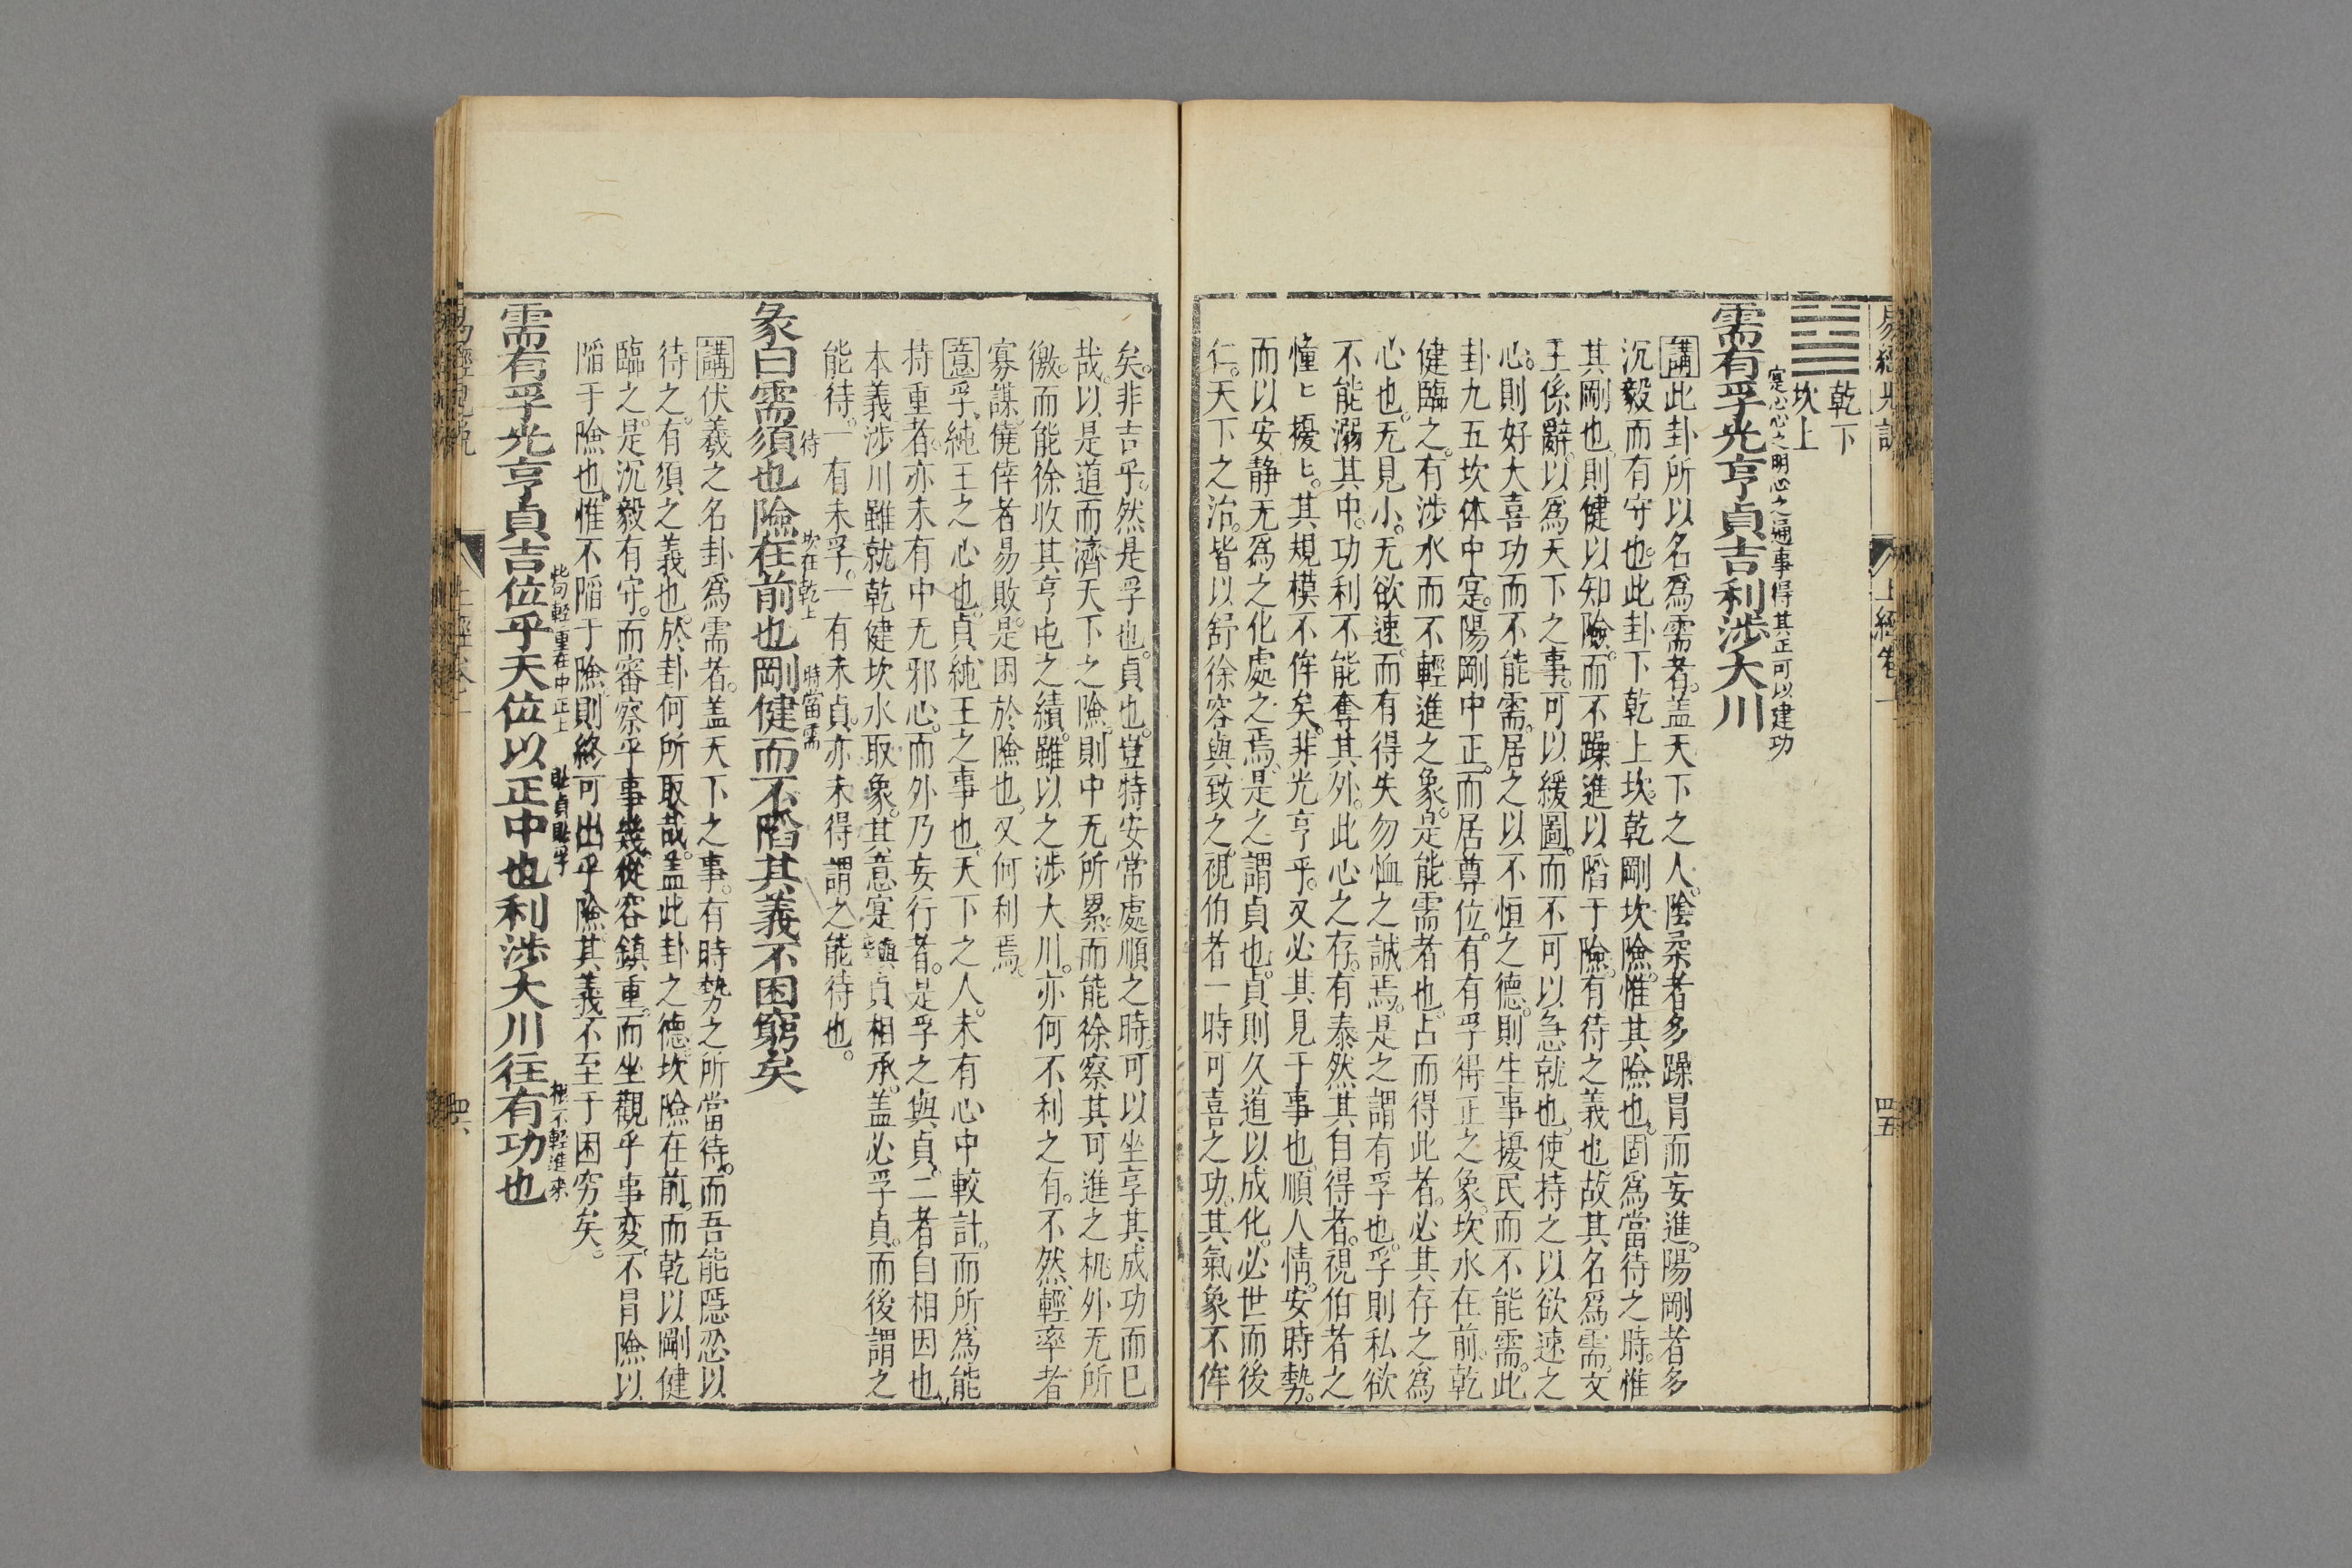 乾下
坎上
實心心之明心之通事得其正可以建功
需有孚光亨貞吉利涉大川
講此卦所以名爲需者。盖天下之人。陰柔者多躁冐而妄進。陽剛者多
沉毅而有守也。此卦下乾上坎。乾剛坎險。惟其險也。固爲當待之時。惟
其剛也。則健以知險。而不躁進以陷于險。有待之義也故其名爲需。文
王係辭。以爲天下之事。可以緩圖。而不可以急就也。使持之以欲速之
心。則好大喜功而不能需。居之以不恒之德。則生事擾民而不能需。此
卦九五坎体中寔。陽剛中正。而居尊位。有有孚得正之象。坎水在前。乾
健臨之。有涉水而不輕進之象。是能需者也。占而得此者。必其存之爲
心也。无見小。无欲速。而有得失勿恤之誠焉。是之謂有孚也。孚則私欲
不能溺其中。功利不能奪其外。此心之存。有泰然其自得者。視伯者之
憧〻擾〻。其規模不侔矣。非光亨乎。又必其見于事也。順人情。安時勢。
而以安静无爲之化處之焉。是之謂貞也。貞則久道以成化。必世而後
仁。天下之治。皆以舒徐容與致之。視伯者一時可喜之功。其氣象不侔
矣。非吉乎。然是孚也。貞也。豈特安常處順之時。可以坐享其成功而已
哉。以是道而濟天下之險。則中无所累。而能徐察其可進之机。外无所
徼。而能徐收其亨屯之績。雖以之涉大川。亦何不利之有。不然。輕率者
寡謀。僥倖者易敗。是困於險也。又何利焉。
意孚。純王之心也。貞。純王之事也。天下之人。未有心中較計。而所爲能
持重者。亦未有中无邪心。而外乃妄行者。是孚之與貞。二者自相因也。
本義涉川雖就乾健坎水取象。其意寔與貞相承。盖必孚貞。而後謂之
能待。一有未孚。一有未貞。亦未得謂之能待也。
待 坎在乾上 時當需
彖曰需須也險在前也剛健而不陷其義不困窮矣
講伏羲之名卦爲需者。盖天下之事。有時勢之所當待。而吾能隱忍以
待之。有須之義也。於卦何所取哉。盖此卦之德。坎險在前。而乾以剛健
臨之。是沉毅有守。而審察乎事幾。從容鎮重。而坐觀乎事变。不冐險以
陷于險也。惟不陷于險。則終可出乎險。其義不至于困穷矣。
此句輕重在中正上 此貞此孚 極不輕進来
需有孚光亨貞吉位乎天位以正中也利涉大川往有功也
上經卷一
四五
四六